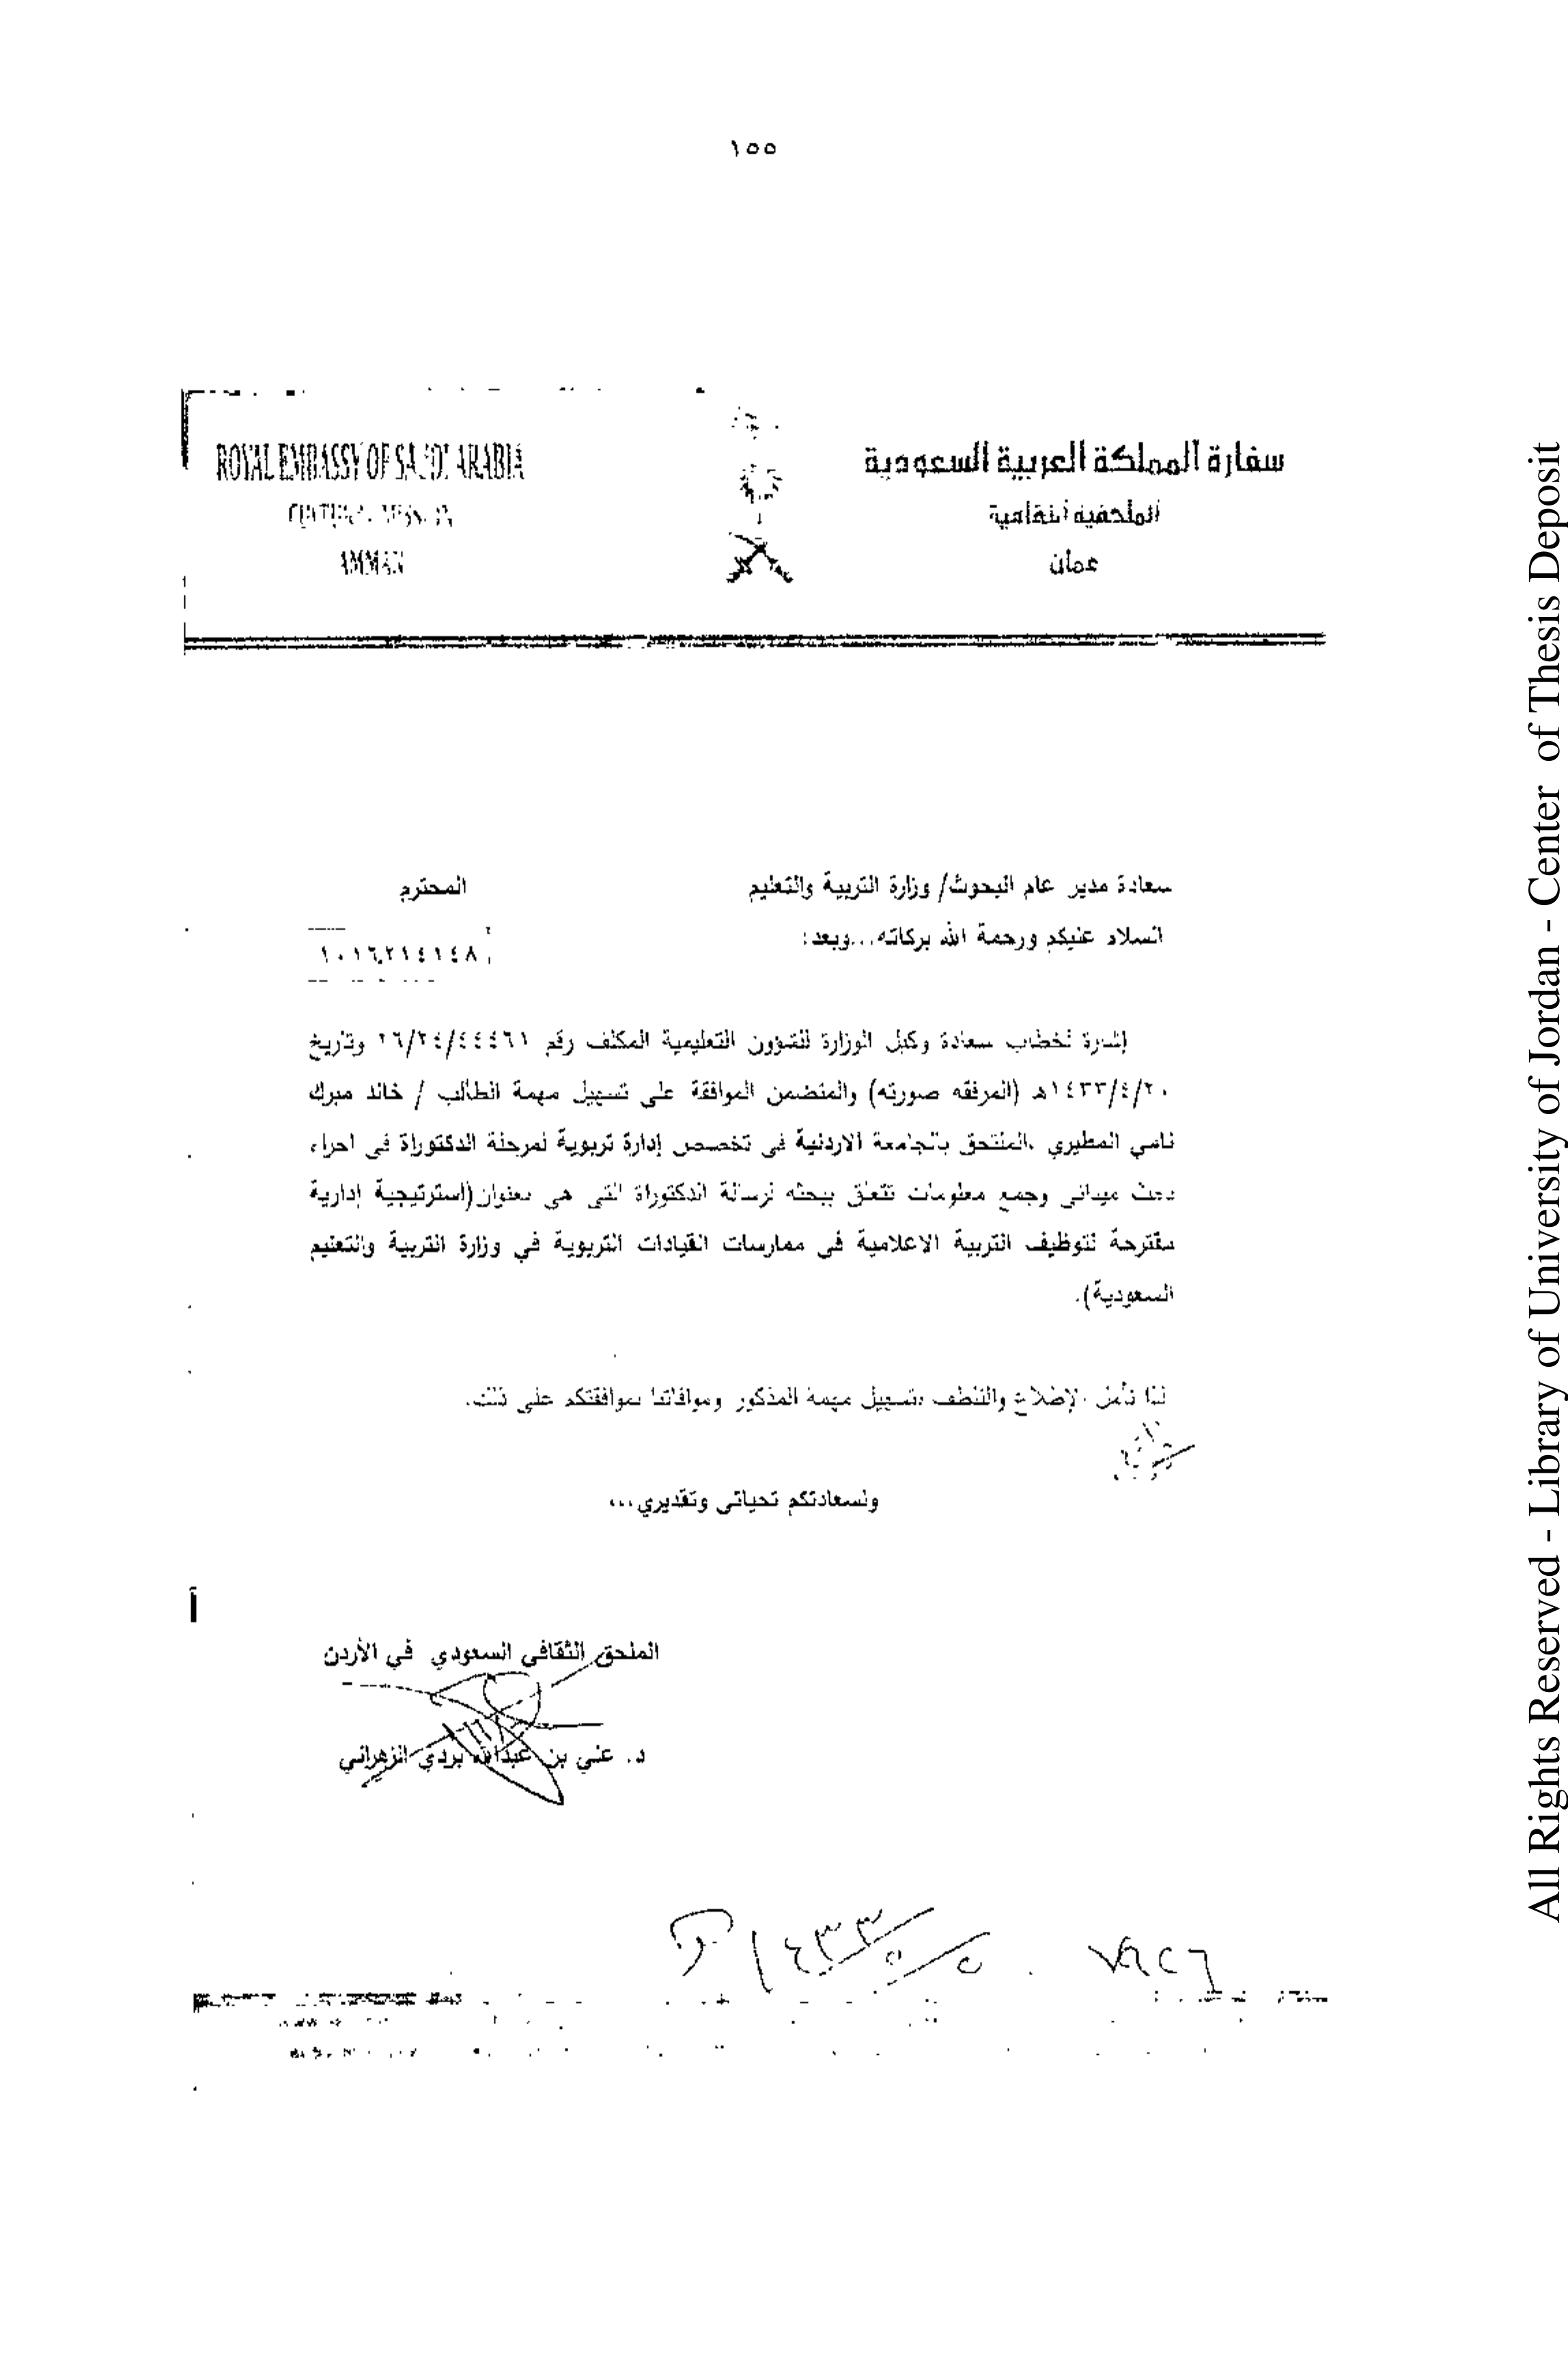 ١٥٥
سفارة المملكة العربية السعودية
الملحقية الثقافية
عمان
ROYAL EMBASSY OF SAUDI ARABIA
CULTURAL MISSION
AMMAN
سعادة مدير عام البحوث/ وزارة التربية والتعليم المحترم
السلام عليكم ورحمة الله بركاته...وبعد:
١٠١٦٢١٤١٤٨
إشارة لخطاب سعادة وكيل الوزارة للشؤون التعليمية المكلف رقم ٢٦/٢٤/٤٤٤٦١ وتاريخ
١٤٣٣/٤/٢٠هـ (المرفقه صورته) والمتضمن الموافقة على تسهيل مهمة الطالب / خالد مبرك
نامي المطيري .الملتحق بالجامعة الاردنية في تخصص إدارة تربوية لمرحلة الدكتوراة في اجراء
بحث ميداني وجمع معلومات تتعلق ببحثه لرسالة الدكتوراة التي هي بعنوان(استرتيجية إدارية
مقترحة لتوظيف التربية الاعلامية في ممارسات القيادات التربوية في وزارة التربية والتعليم
السعودية).
لذا نأمل الإطلاع والتلطف بتسهيل مهمة المذكور وموافاتنا بموافقتكم على ذلك.
ولسعادتكم تحياتي وتقديري،،،
الملحق الثقافي السعودي في الأردن
د. علي بن عبدالله بردي الزهراني
All Rights Reserved - Library of University of Jordan - Center of Thesis Deposit